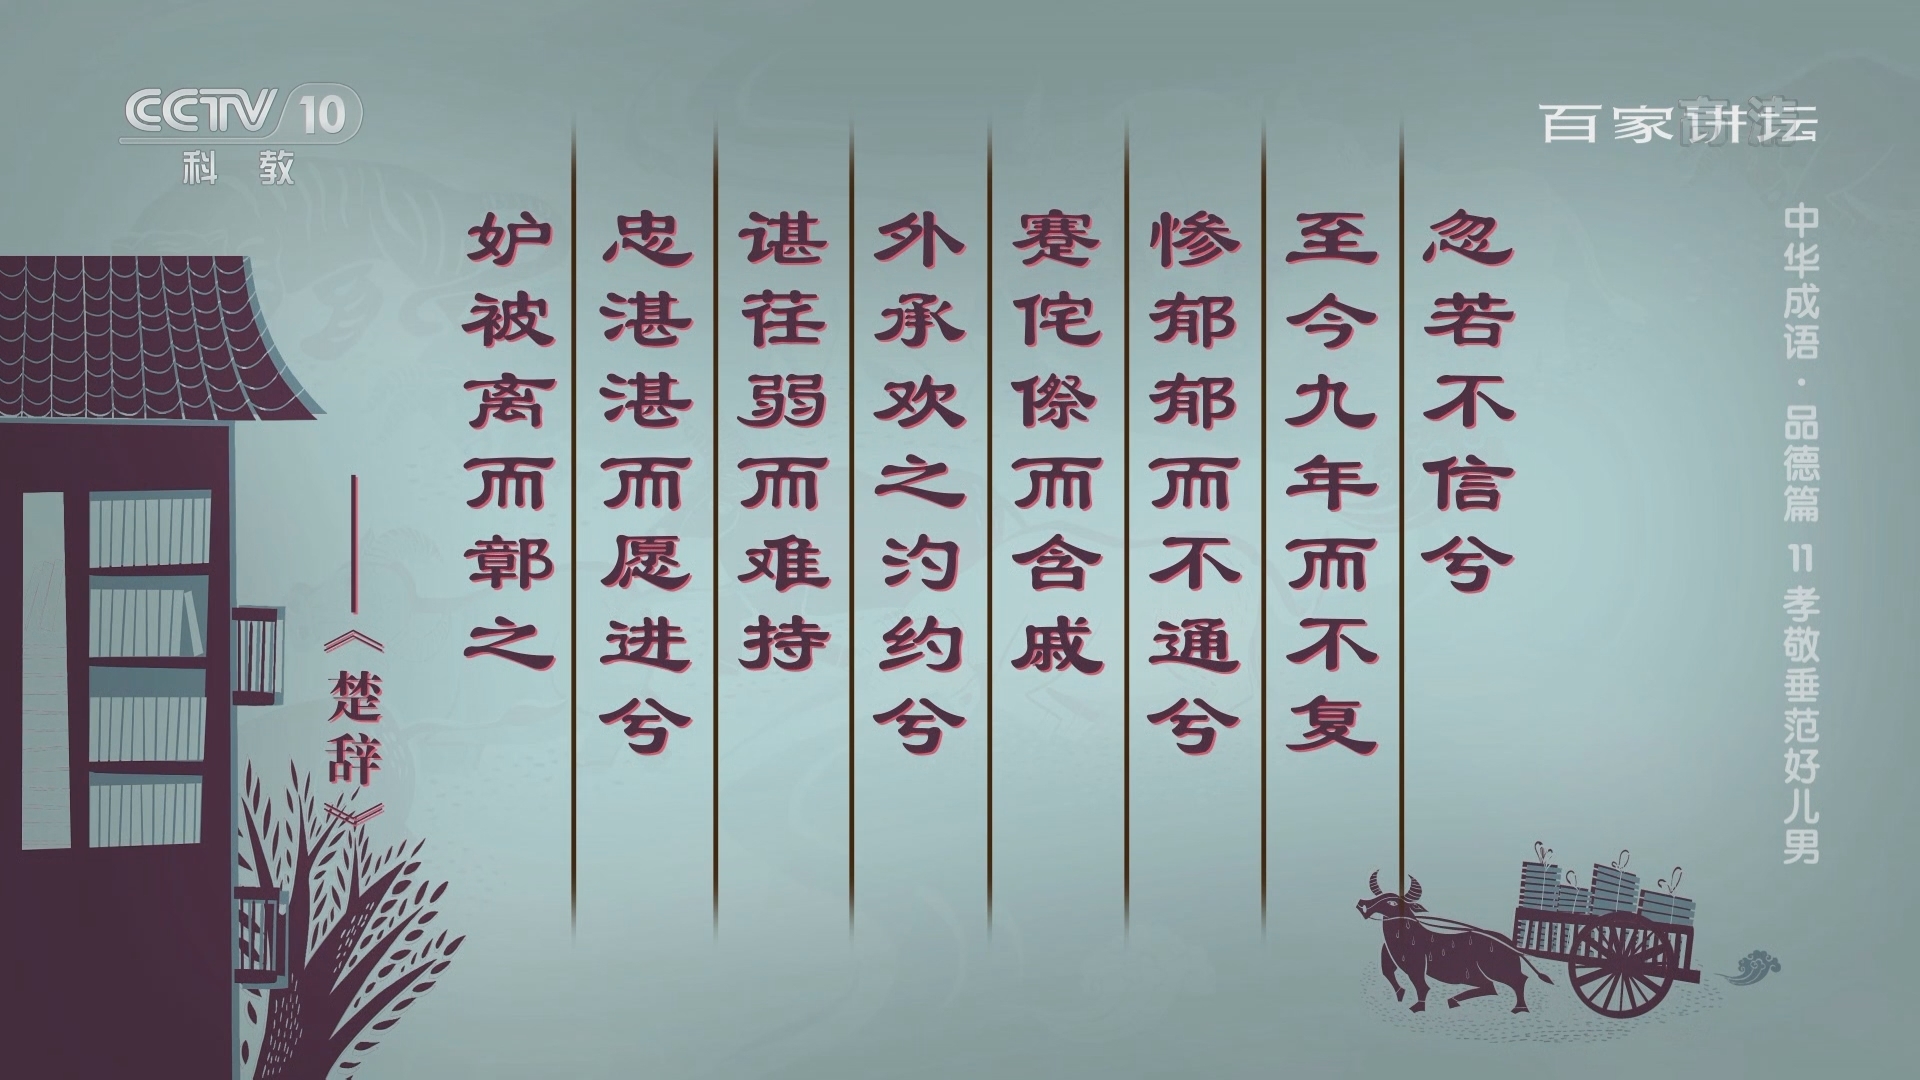 CCTV 10
科 教
百家讲坛
高清
中华成语·品德篇 11 孝敬垂范好儿男
忽若不信兮
至今九年而不复
惨郁郁而不通兮
蹇侘傺而含戚
外承欢之汋约兮
谌荏弱而难持
忠湛湛而愿进兮
妒被离而鄣之
——《楚辞》